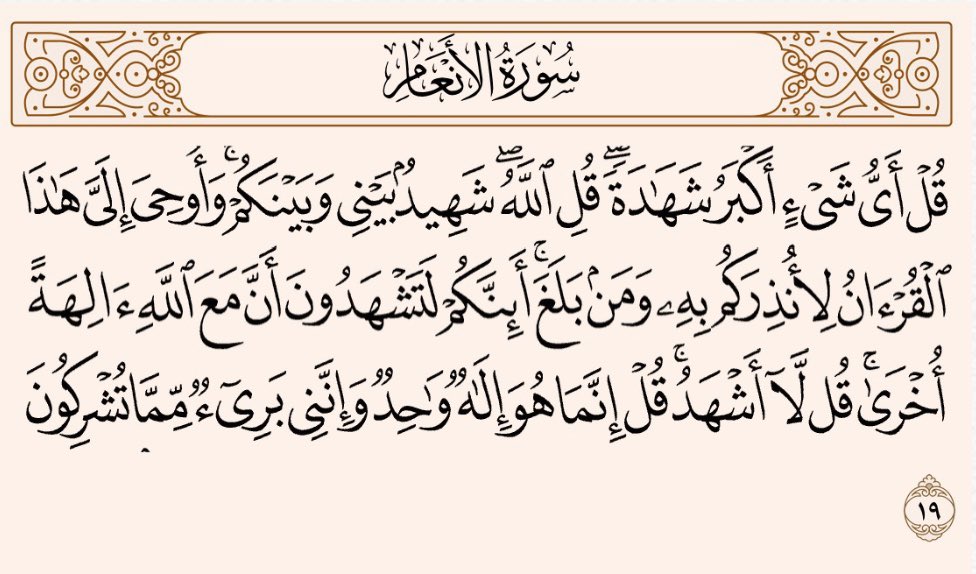 سُورَةُ الأَنْعَامِ
قُلْ أَىُّ شَىْءٍ أَكْبَرُ شَهَـٰدَةًۖ قُلِ ٱللَّهُۖ شَهِيدٌۢ بَيْنِى وَبَيْنَكُمْۚ وَأُوحِىَ إِلَىَّ هَـٰذَا
ٱلْقُرْءَانُ لِأُنذِرَكُم بِهِۦ وَمَنۢ بَلَغَۚ أَئِنَّكُمْ لَتَشْهَدُونَ أَنَّ مَعَ ٱللَّهِ ءَالِهَةً
أُخْرَىٰۚ قُل لَّآ أَشْهَدُۚ قُلْ إِنَّمَا هُوَ إِلَـٰهٌ وَٰحِدٌ وَإِنَّنِى بَرِىٓءٌ مِّمَّا تُشْرِكُونَ
١٩